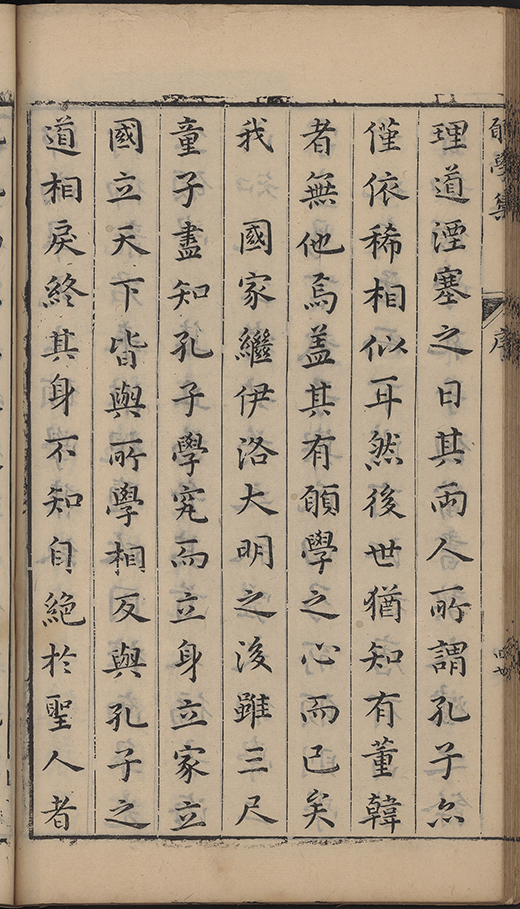 願學集
序
四廿
理道湮塞之日其兩人所謂孔子尒
僅依稀相似耳然後世猶知有董韓
者無他焉盖其有願學之心而已矣
我 國家繼伊洛大明之後雖三尺
童子盡知孔子學究而立身立家立
國立天下皆與所學相反與孔子之
道相戾終其身不知自絕於聖人者